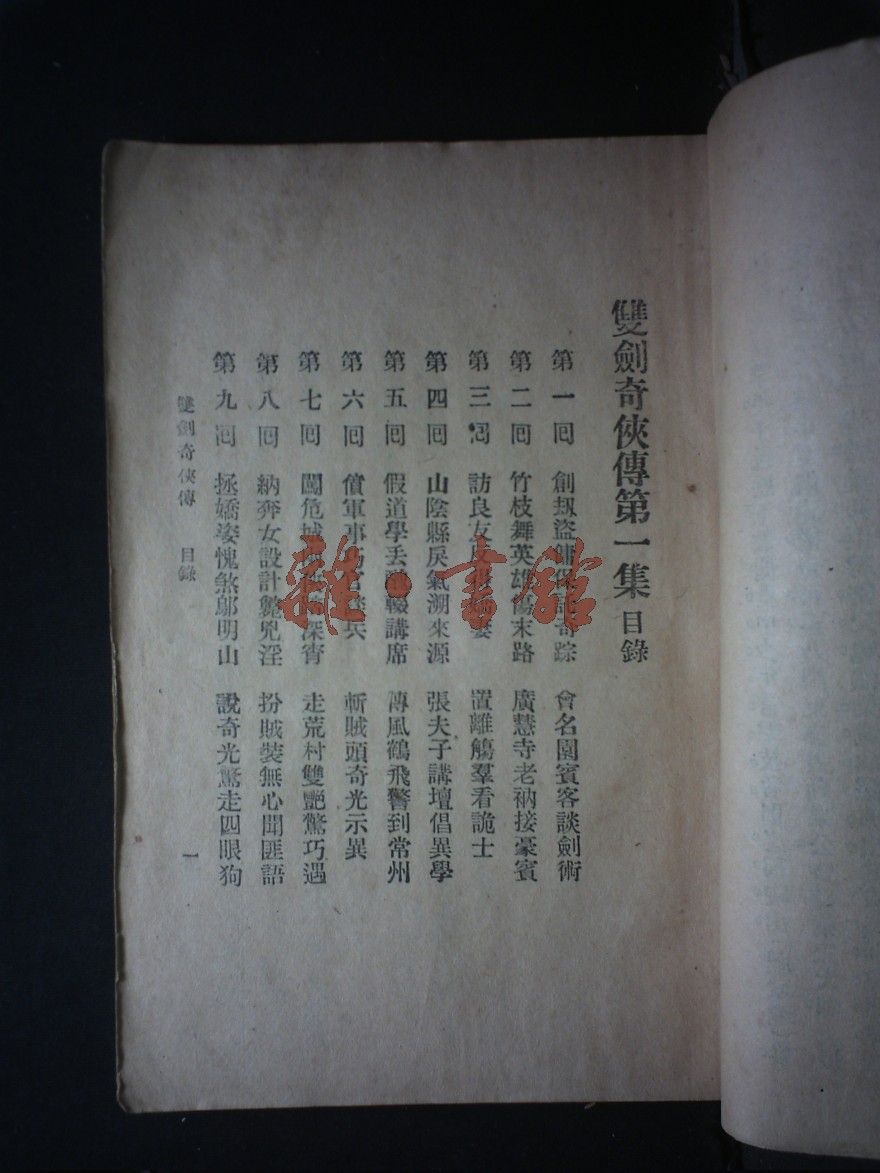 雙劍奇俠傳第一集 目錄
第一回 創刼盜 奇踪 會名園賓客談劍術
第二回 竹枝舞英雄傷末路 廣慧寺老衲接豪賓
第三回 訪良友 置離觴羣看詭士
第四回 山陰縣戾氣溯來源 張夫子講壇倡異學
第五回 假道學丟 輟講席 傳風鶴飛警到常州
第六回 僨軍事 兵 斬賊頭奇光示異
第七回 闖危城 深宵 走荒村雙艷驚巧遇
第八回 納奔女設計斃兇淫 扮賊裝無心聞匪語
第九回 拯嬌姿愧煞鄔明山 說奇光驚走四眼狗
雙劍奇俠傳 目錄 一
雜·書館